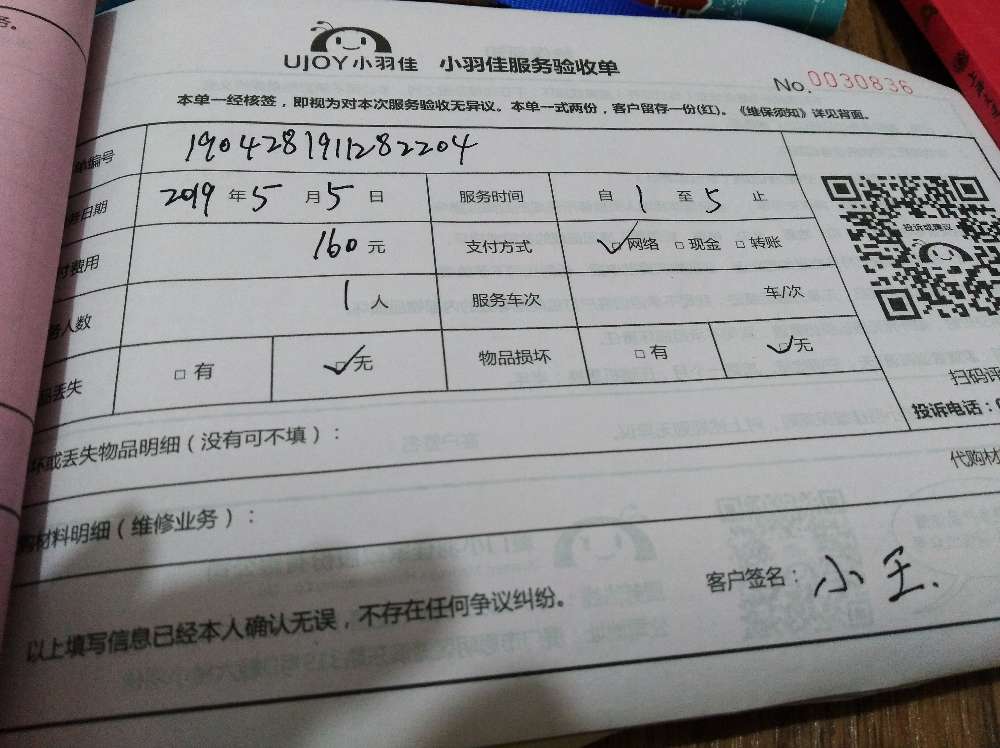 UJOY小羽佳 小羽佳服务验收单
No.0030836
本单一经核签，即视为对本次服务验收无异议。本单一式两份，客户留存一份(红)。《维保须知》详见背面。
单编号 1904281911282204
日期 2019年5月5日 服务时间 自1至5止
费用 160元 支付方式 ☑网络 □现金 □转账
人数 1人 服务车次 车/次
丢失 □有 ☑无 物品损坏 □有 ☑无
投诉或建议
扫码评
投诉电话：
坏或丢失物品明细（没有可不填）：
代购材
材料明细（维修业务）：
以上填写信息已经本人确认无误，不存在任何争议纠纷。
客户签名：小王.